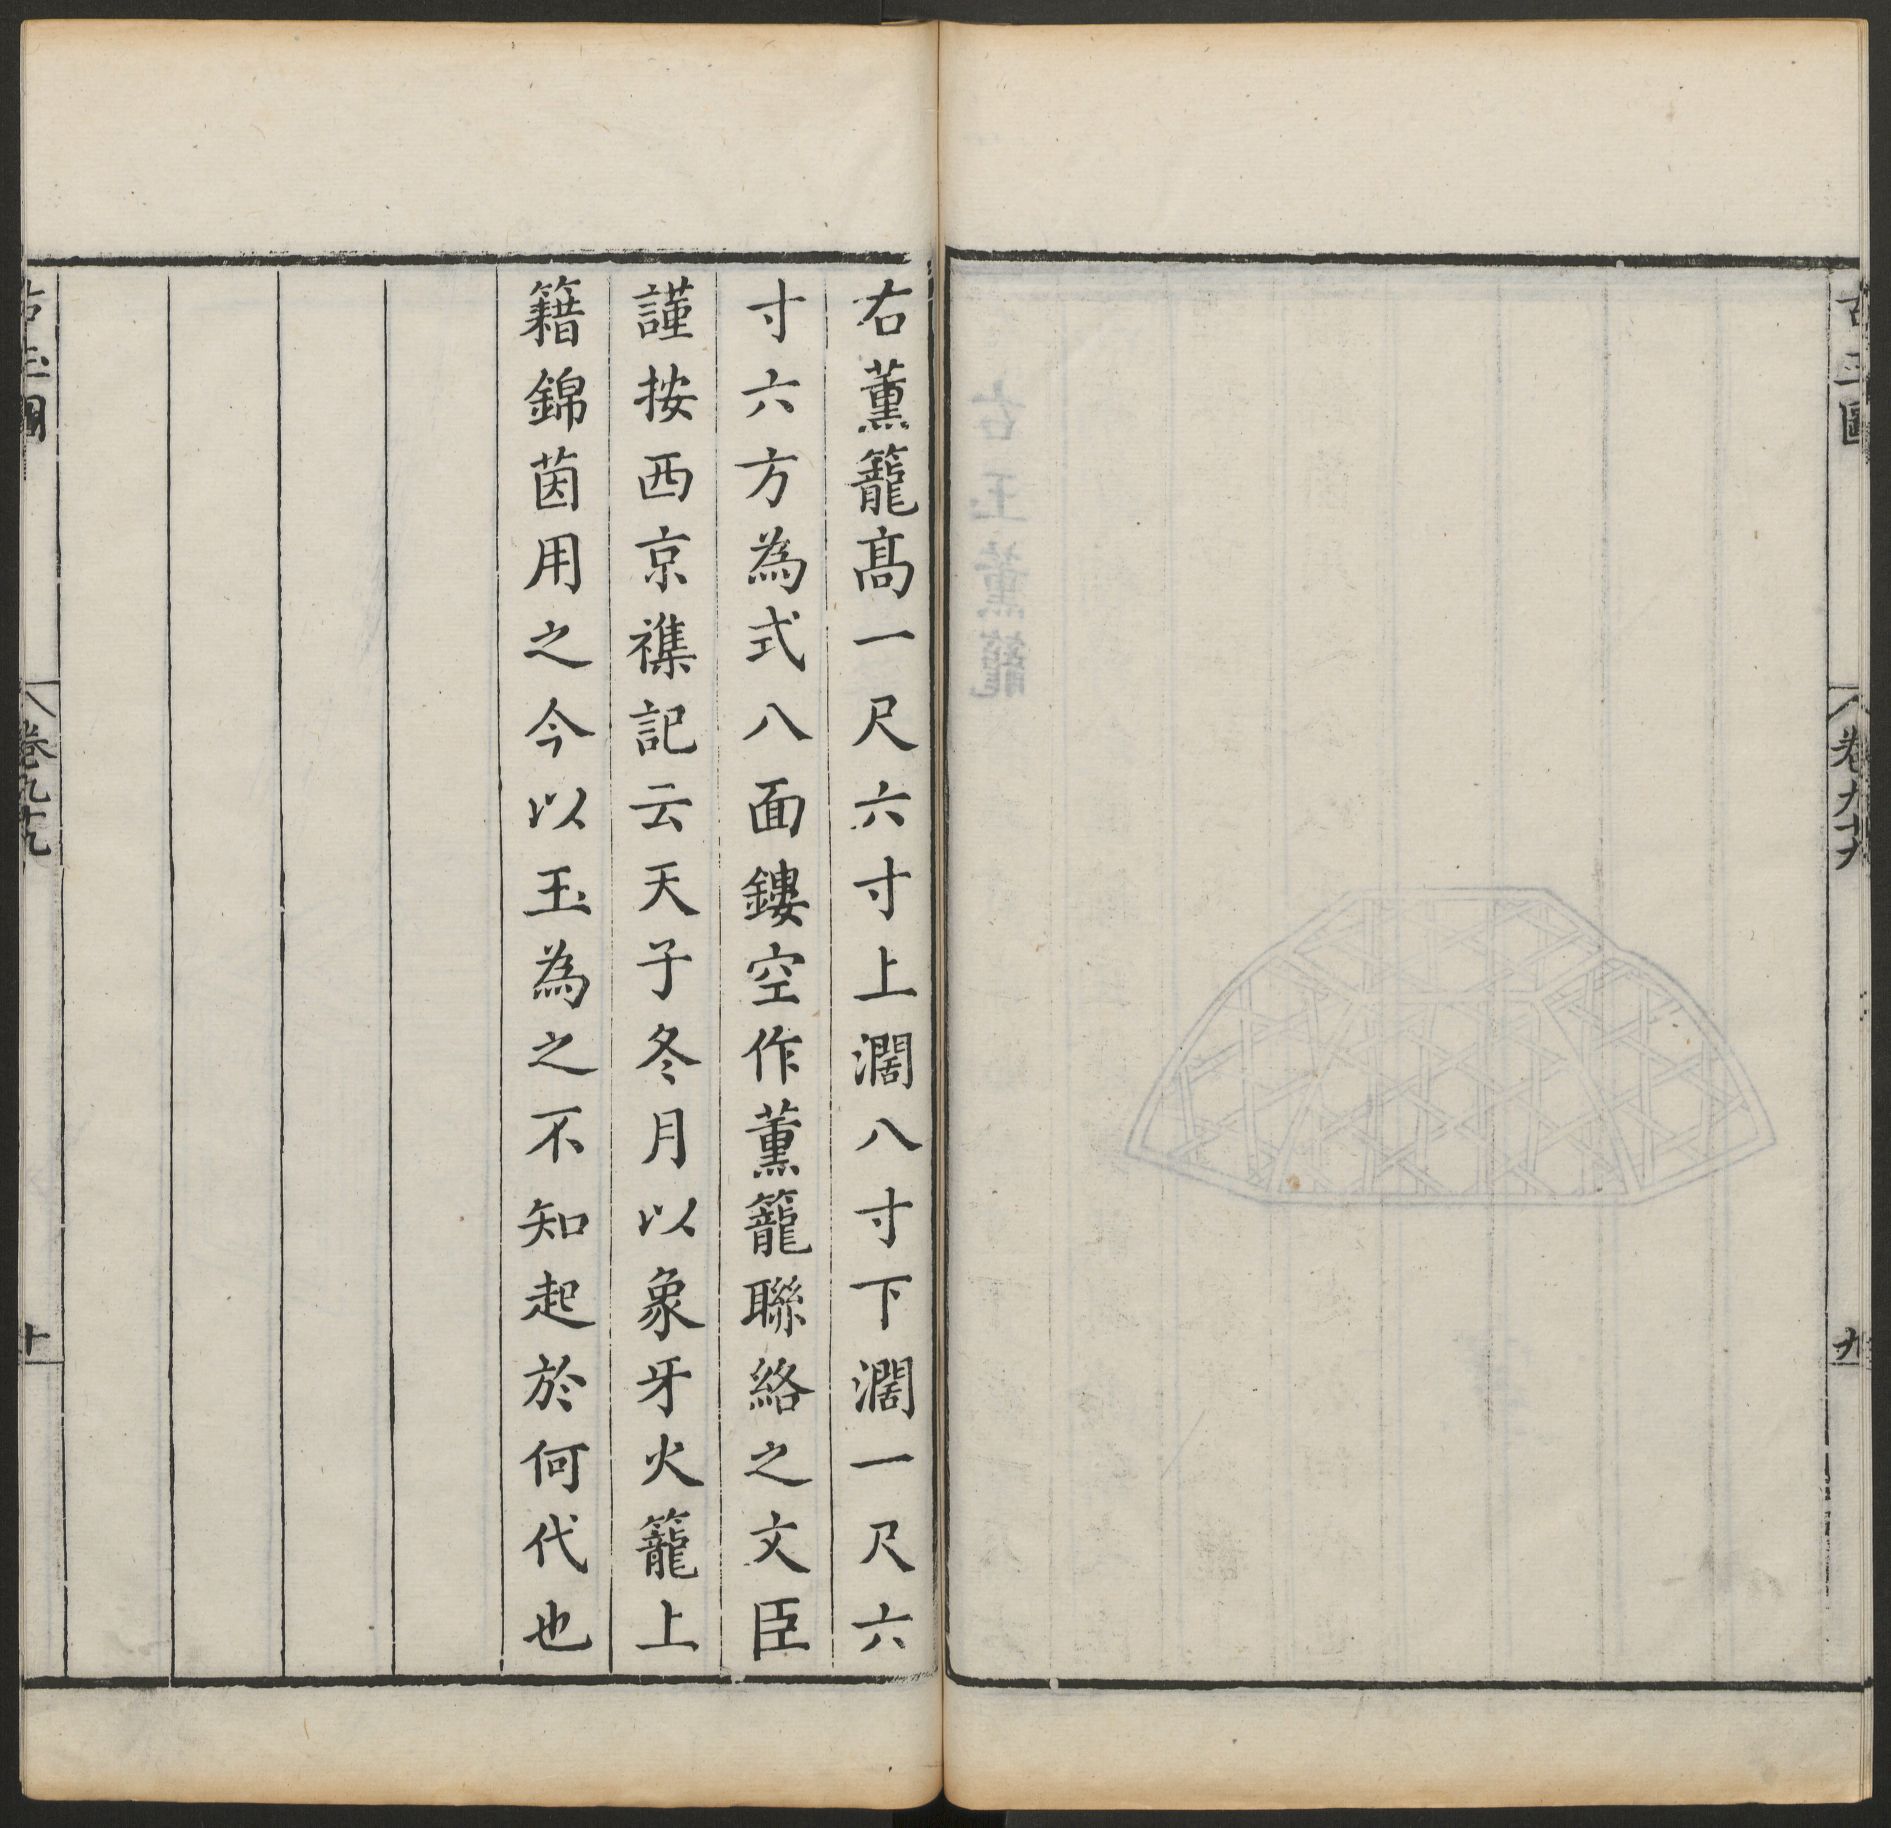 古玉圖
卷九十九
九
右薰籠髙一尺六寸上濶八寸下濶一尺六
寸六方為式八面鏤空作薰籠聯絡之文臣
謹按西京襍記云天子冬月以象牙火籠上
籍錦茵用之今以玉為之不知起於何代也
古玉圖
卷九十九
十